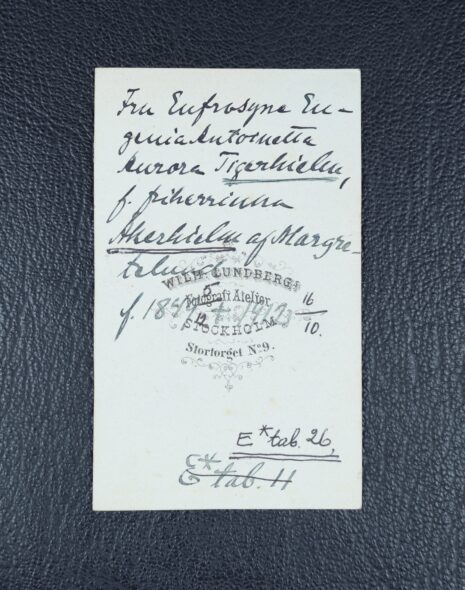 Fru Eufrosyne Eu-
genia Antoinetta
Aurora Tigerhielm,
f. friherrinna
Åkerhielm af Margre-
telund
WILH. LUNDBERGS
Fotografi Atelier
STOCKHOLM
Stortorget No 9.
f. 1849 5/12 † 1912 16/10.
E* tab. 26,
E* tab. 11